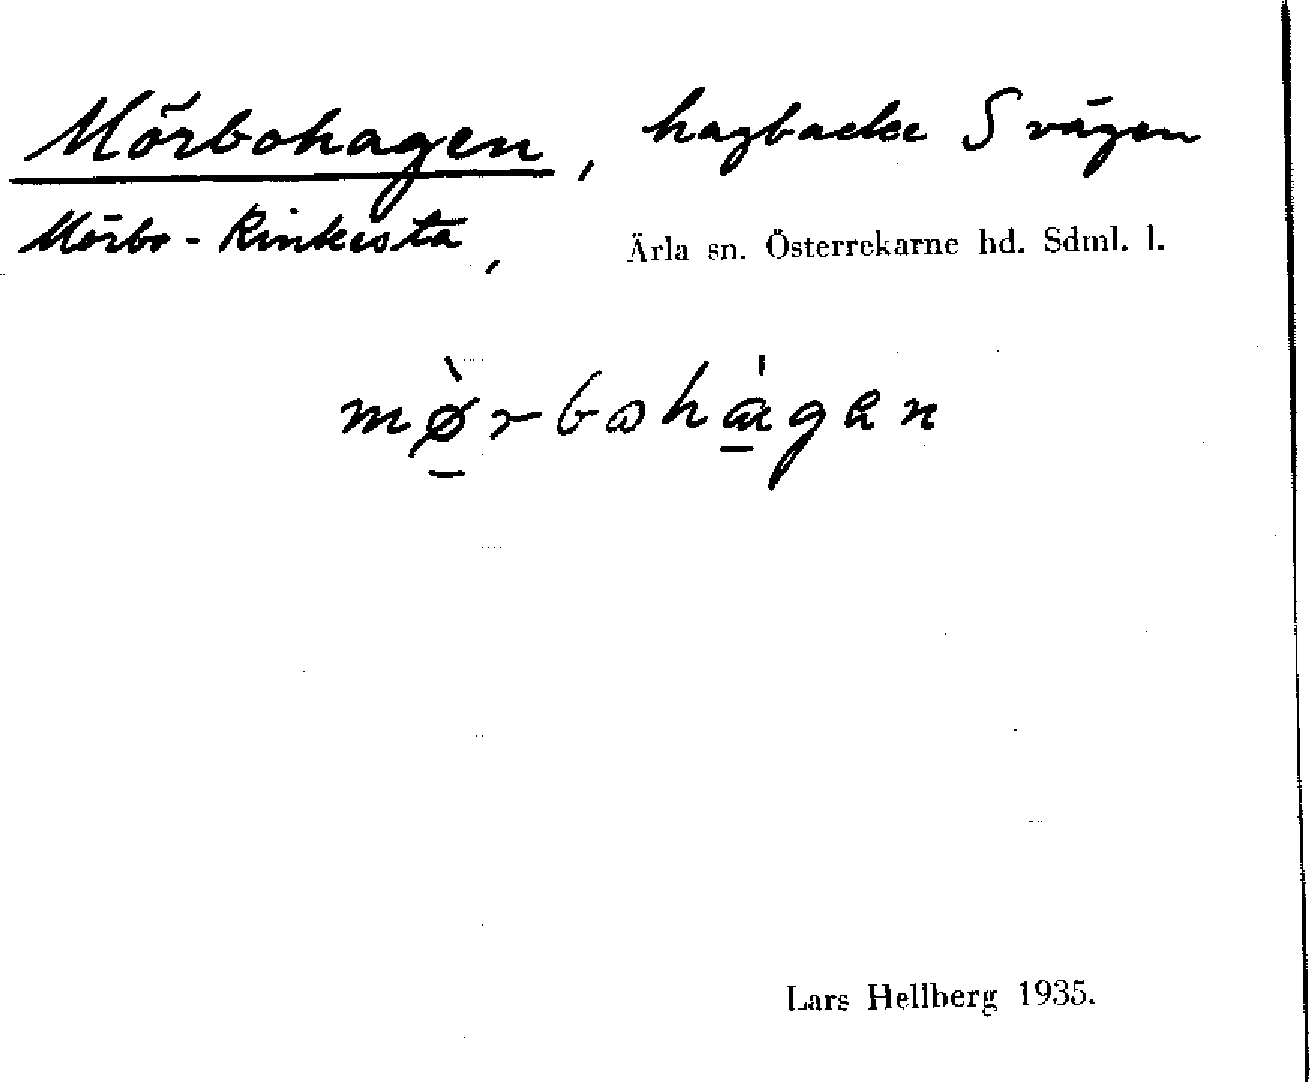 Mörbohagen, hagbacke S vägen
Mörbo-Rinkesta, Ärla sn. Österrekarne hd. Sdml. l.
mø̲̀rbωhɑ̲̍gen
Lars Hellberg 1935.